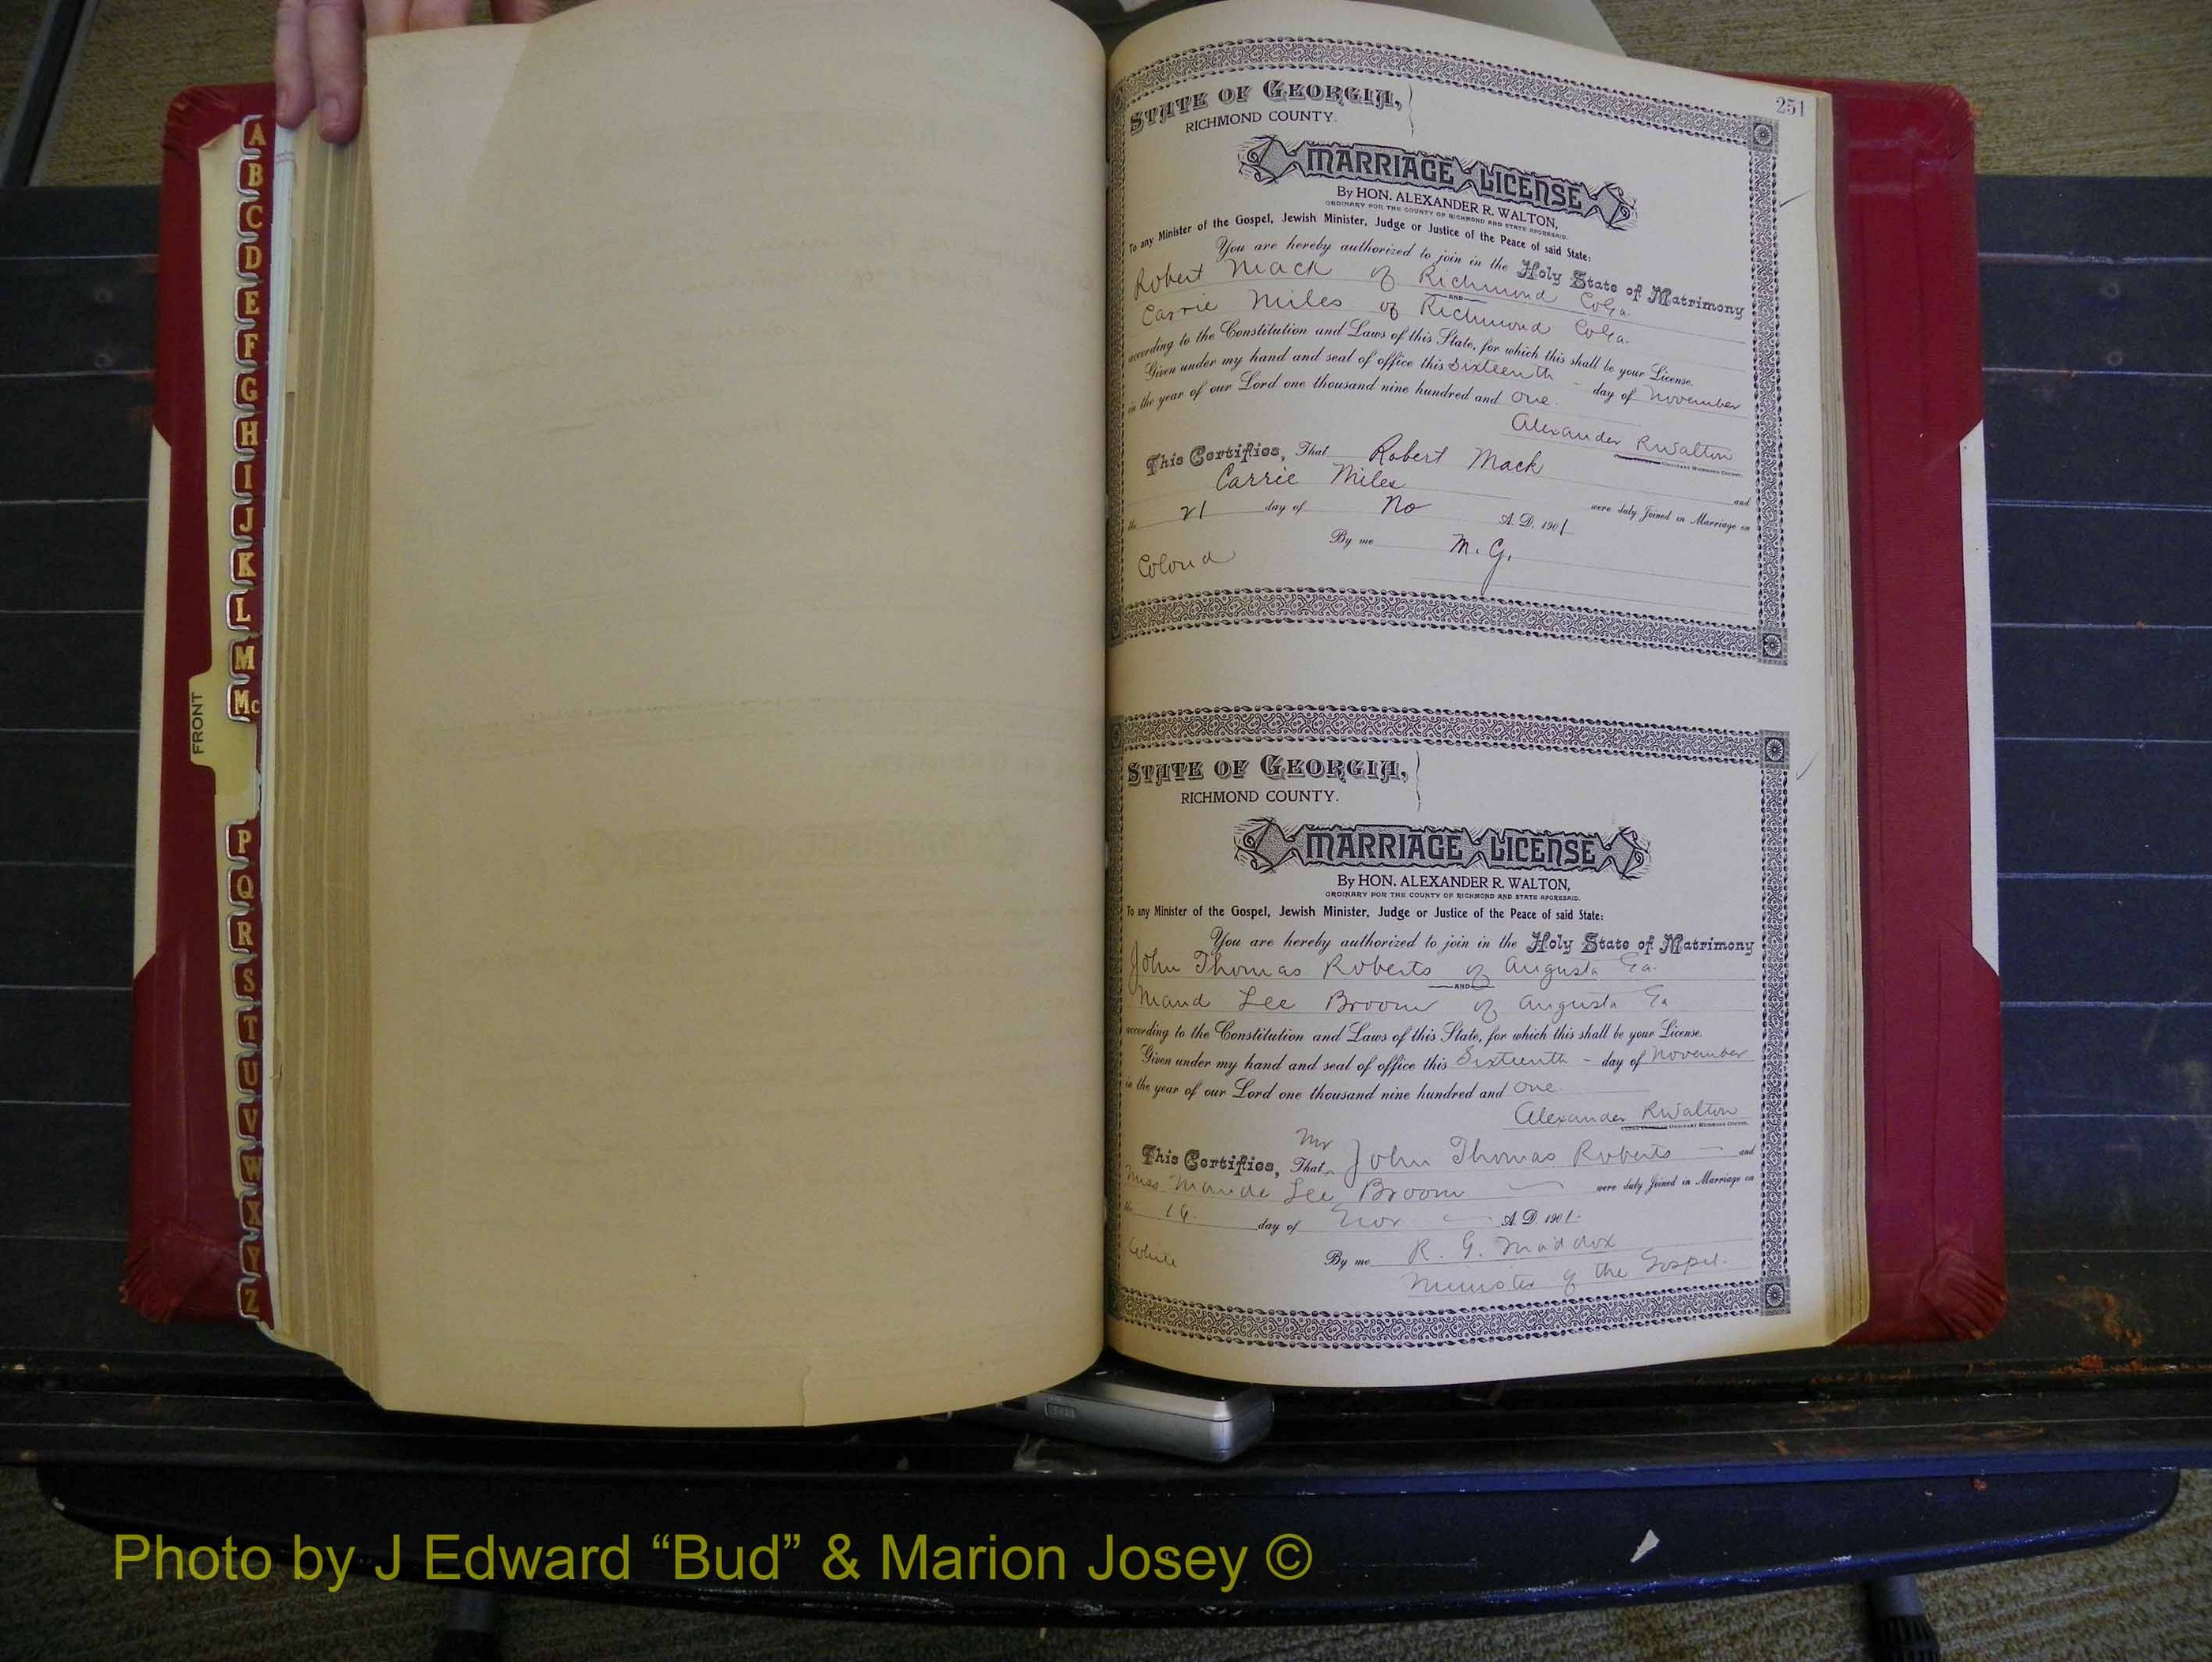 A
B
C
D
E
F
G
H
I
J
K
L
M
Mc
FRONT
P
Q
R
S
T
U
V
W
X
Y
Z
251
STATE OF GEORGIA,
RICHMOND COUNTY.
MARRIAGE LICENSE
By HON. ALEXANDER R. WALTON,
ORDINARY FOR THE COUNTY OF RICHMOND AND STATE AFORESAID.
To any Minister of the Gospel, Jewish Minister, Judge or Justice of the Peace of said State:
You are hereby authorized to join in the Holy State of Matrimony
Robert Mack of Richmond Co Ga.
AND
Carrie Miles of Richmond Co Ga.
according to the Constitution and Laws of this State, for which this shall be your License.
Given under my hand and seal of office this Sixteenth - day of November
in the year of our Lord one thousand nine hundred and one.
Alexander R Walton
ORDINARY RICHMOND COUNTY.
This Certifies, That Robert Mack and
Carrie Miles were duly Joined in Marriage on
the 21 day of No A. D. 1901
By me M. G.
Colord
STATE OF GEORGIA,
RICHMOND COUNTY.
MARRIAGE LICENSE
By HON. ALEXANDER R. WALTON,
ORDINARY FOR THE COUNTY OF RICHMOND AND STATE AFORESAID.
To any Minister of the Gospel, Jewish Minister, Judge or Justice of the Peace of said State:
You are hereby authorized to join in the Holy State of Matrimony
John Thomas Roberts of Augusta Ga.
AND
Maud Lee Broom of Augusta Ga
according to the Constitution and Laws of this State, for which this shall be your License.
Given under my hand and seal of office this Sixteenth - day of November
in the year of our Lord one thousand nine hundred and one.
Alexander R Walton
ORDINARY RICHMOND COUNTY.
Mr
This Certifies, That John Thomas Roberts — and
Miss Maude Lee Broom — were duly Joined in Marriage on
the day of Nov — A. D. 1901
White By me R. G. Maddox
Minister of the Gospel.
Photo by J Edward “Bud” & Marion Josey ©